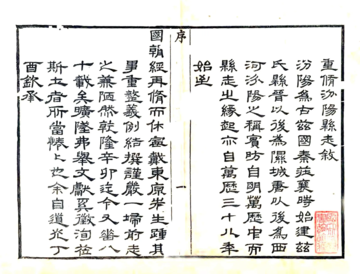 重脩汾陽縣志敘
汾陽為古茲國秦莊襄時始建茲
氏縣晉以後為隰城唐以後為西
河汾陽之稱實昉自明萬歷中而
縣志之緣起亦自萬歷三十八年
始
序
一
國朝經再脩而休寧戴東原先生踵其
重整義例結撰謹嚴一埽前志
之蕪陋然乾隆辛卯迄今又八
十載矣曠弗舉文獻奚徵洵莅
斯土者所當也余自道光丁
酉欽承